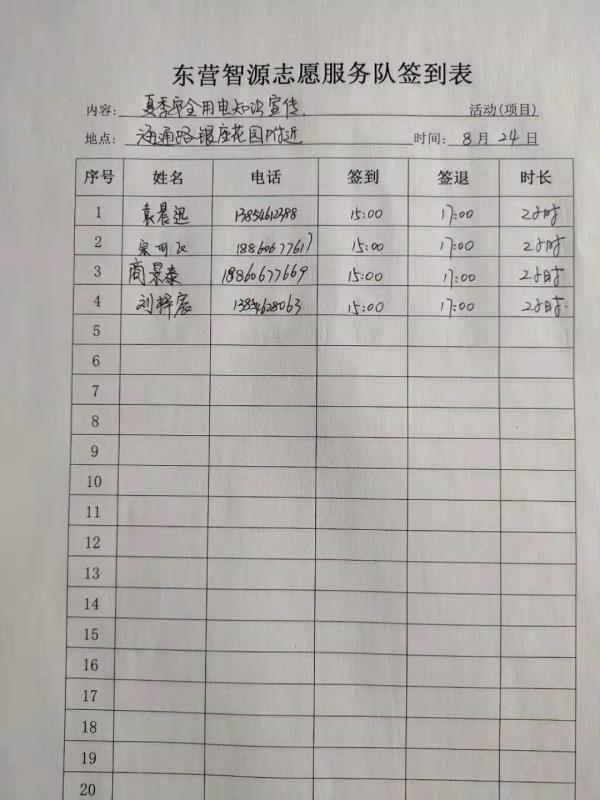 东营智源志愿服务队签到表
内容: 夏季安全用电知识宣传 活动(项目)
地点: 海通路银座花园附近 时间: 8月24日
序号 姓名 电话 签到 签退 时长
1 袁晨迅 13854612388 15:00 17:00 2小时
2 18860677617 15:00 17:00 2小时
3 商景泰 18860677669 15:00 17:00 2小时
4 刘梓宸 13854628063 15:00 17:00 2小时.
5
6
7
8
9
10
11
12
13
14
15
16
17
18
19
20